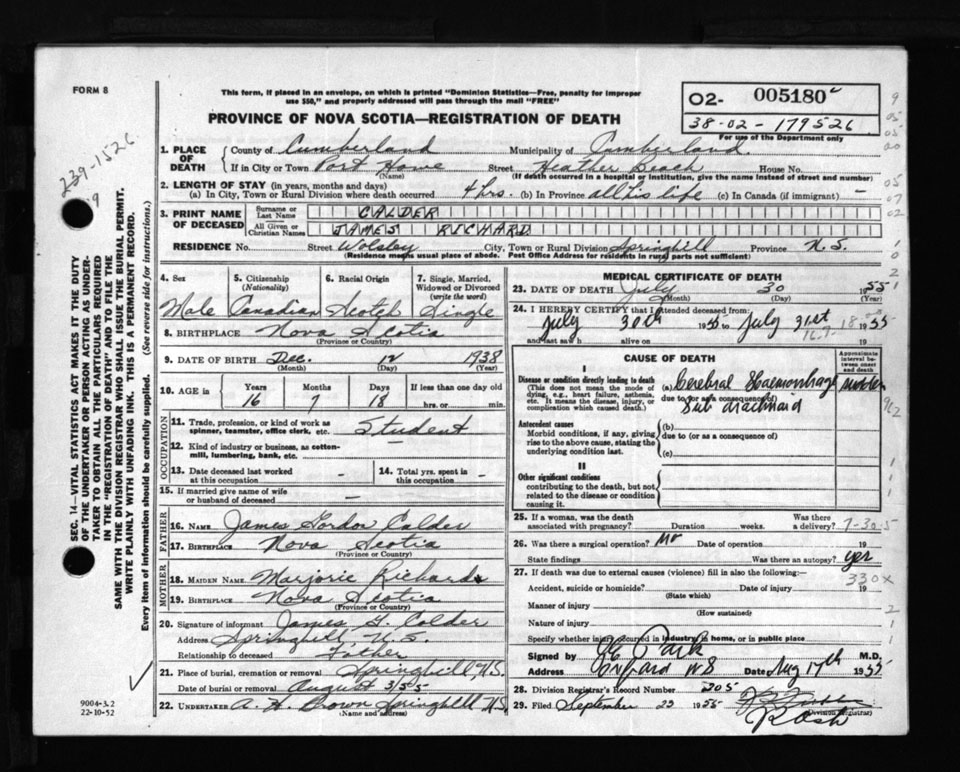 FORM 8
This form, if placed in an envelope, on which is printed "Dominion Statistics—Free, penalty for improper
use $50," and properly addressed will pass through the mail "FREE"
PROVINCE OF NOVA SCOTIA—REGISTRATION OF DEATH
02- 005180
38-02-179526
For use of the Department only
239-1526
SEC. 14—VITAL STATISTICS ACT MAKES IT THE DUTY
OF THE UNDERTAKER OR PERSON ACTING AS UNDER-
TAKER TO OBTAIN ALL THE PARTICULARS REQUIRED
IN THE "REGISTRATION OF DEATH" AND TO FILE THE
SAME WITH THE DIVISION REGISTRAR WHO SHALL ISSUE THE BURIAL PERMIT.
WRITE PLAINLY WITH UNFADING INK. THIS IS A PERMANENT RECORD.
Every item of information should be carefully supplied. (See reverse side for instructions.)
1. PLACE OF DEATH
County of Cumberland Municipality of Cumberland
If in City or Town Port Howe Street Heather Beach House No.
(Name) (If death occurred in a hospital or institution, give the name instead of street and number)
2. LENGTH OF STAY (in years, months and days)
(a) In City, Town or Rural Division where death occurred 4 hrs. (b) In Province all his life (c) In Canada (if immigrant) —
3. PRINT NAME OF DECEASED
Surname or Last Name CALDER
All Given or Christian Names JAMES RICHARD
RESIDENCE No. Street Wolsley City, Town or Rural Division Springhill Province N.S.
(Residence means usual place of abode. Post Office Address for residents in rural parts not sufficient)
4. Sex 5. Citizenship (Nationality) 6. Racial Origin 7. Single, Married, Widowed or Divorced (write the word)
Male Canadian Scotch Single
8. BIRTHPLACE Nova Scotia
(Province or Country)
9. DATE OF BIRTH Dec. 12 1938
(Month) (Day) (Year)
10. AGE in Years Months Days If less than one day old
16 7 18 hrs. or min.
OCCUPATION
11. Trade, profession, or kind of work as
spinner, teamster, office clerk, etc. Student
12. Kind of industry or business, as cotton-
mill, lumbering, bank, etc.
13. Date deceased last worked at this occupation — 14. Total yrs. spent in this occupation —
15. If married give name of wife
or husband of deceased —
FATHER
16. NAME James Gordon Calder
17. BIRTHPLACE Nova Scotia
(Province or Country)
MOTHER
18. MAIDEN NAME Marjorie Richards
19. BIRTHPLACE Nova Scotia
(Province or Country)
20. Signature of informant James G. Calder
Address Springhill N.S.
Relationship to deceased Father
21. Place of burial, cremation or removal Springhill, N.S.
Date of burial or removal August 3/55
22. UNDERTAKER A. H. Brown Springhill N.S.
(Name and address)
9004-3.2
22-10-52
MEDICAL CERTIFICATE OF DEATH
23. DATE OF DEATH July 30 1955
(Month) (Day) (Year)
24. I HEREBY CERTIFY that I attended deceased from:
July 30th 1955 to July 31st 1955
and last saw h alive on 19
CAUSE OF DEATH
Approximate interval between onset and death
I
Disease or condition directly leading to death (a) Cerebral Haemorrhage
(This does not mean the mode of dying, e.g., heart failure, asthenia, etc. It means the disease, injury, or complication which caused death.)
due to (or as a consequence of)
Sub arachnoid
Antecedent causes
Morbid conditions, if any, giving rise to the above cause, stating the underlying condition last.
(b)
due to (or as a consequence of)
(c)
II
Other significant conditions
contributing to the death, but not related to the disease or condition causing it.
25. If a woman, was the death associated with pregnancy? Duration weeks. Was there a delivery?
7-30-5
26. Was there a surgical operation? Date of operation 19
State findings Was there an autopsy? yes
27. If death was due to external causes (violence) fill in also the following:—
330x
Accident, suicide or homicide? Date of injury 19
(State which)
Manner of injury
(How sustained)
Nature of injury
Specify whether injury occurred in industry, in home, or in public place
Signed by Park M.D.
Address Aug 17th 1955
28. Division Registrar's Record Number 205
29. Filed September 23 1955
(Division Registrar)